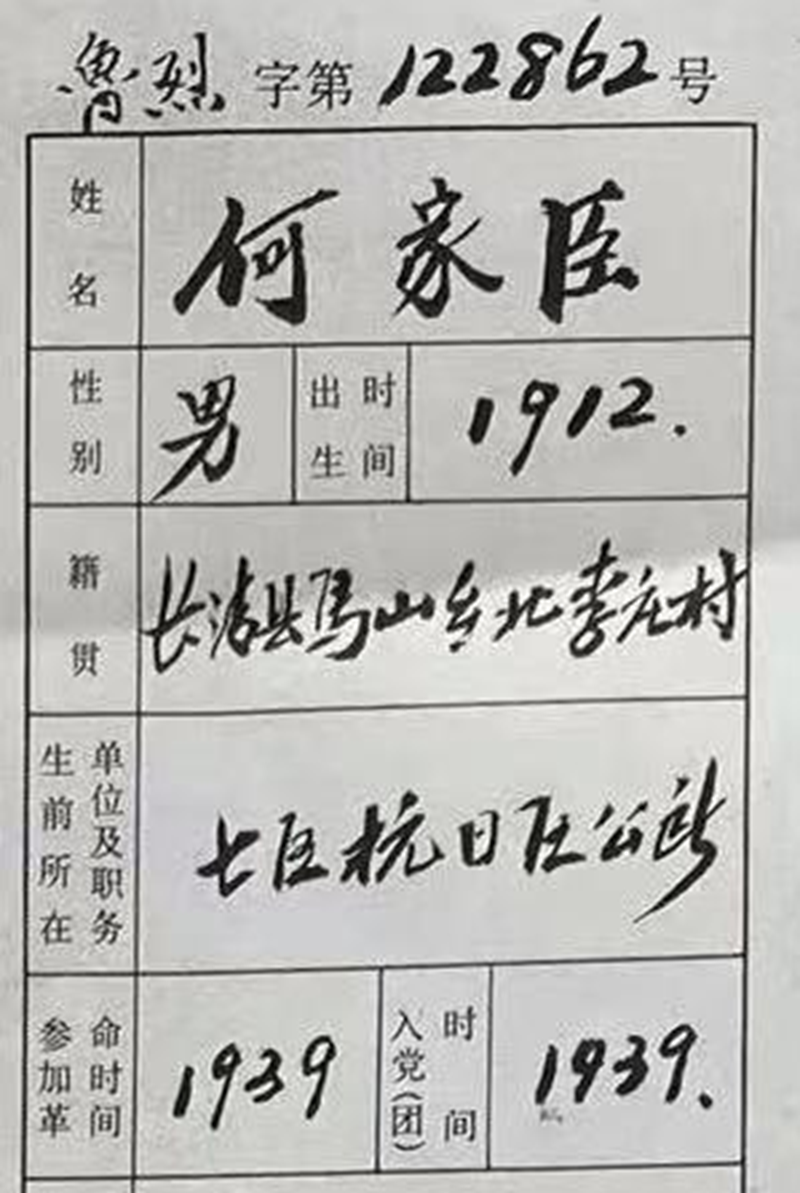 鲁烈字第122862号
姓名 何家臣
性别 男 出生时间 1912.
籍贯 长清县马山乡北李庄村
生前所在单位及职务 七区抗日区公所
参加革命时间 1939 入党(团)时间 1939.